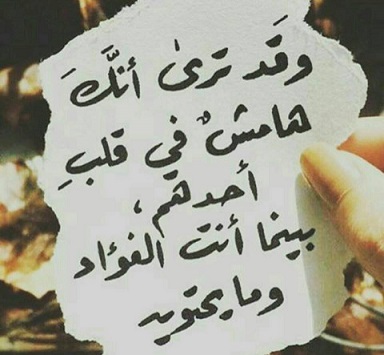 وقَد ترىٰ أنَّكَ
هامشٌ في قلبِ
أحدهم،
بينما أنت الفؤاد
وما يحتويه